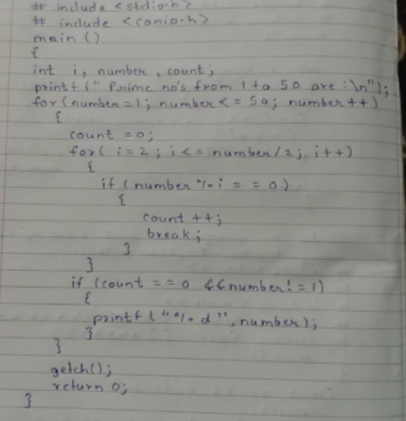 # include <stdio.h>
# include <conio.h>
main ()
{
int i, number, count;
printf (" Prime no's from 1 to 50 are :\n");
for (number = 1; number <= 50; number ++)
{
count = 0;
for ( i = 2 ; i <= number/2 ; i++)
{
if (number % i = = 0)
{
count ++;
break;
}
}
if (count = = 0 && number! = 1)
{
printf ("% d", number);
}
}
getch();
return 0;
}